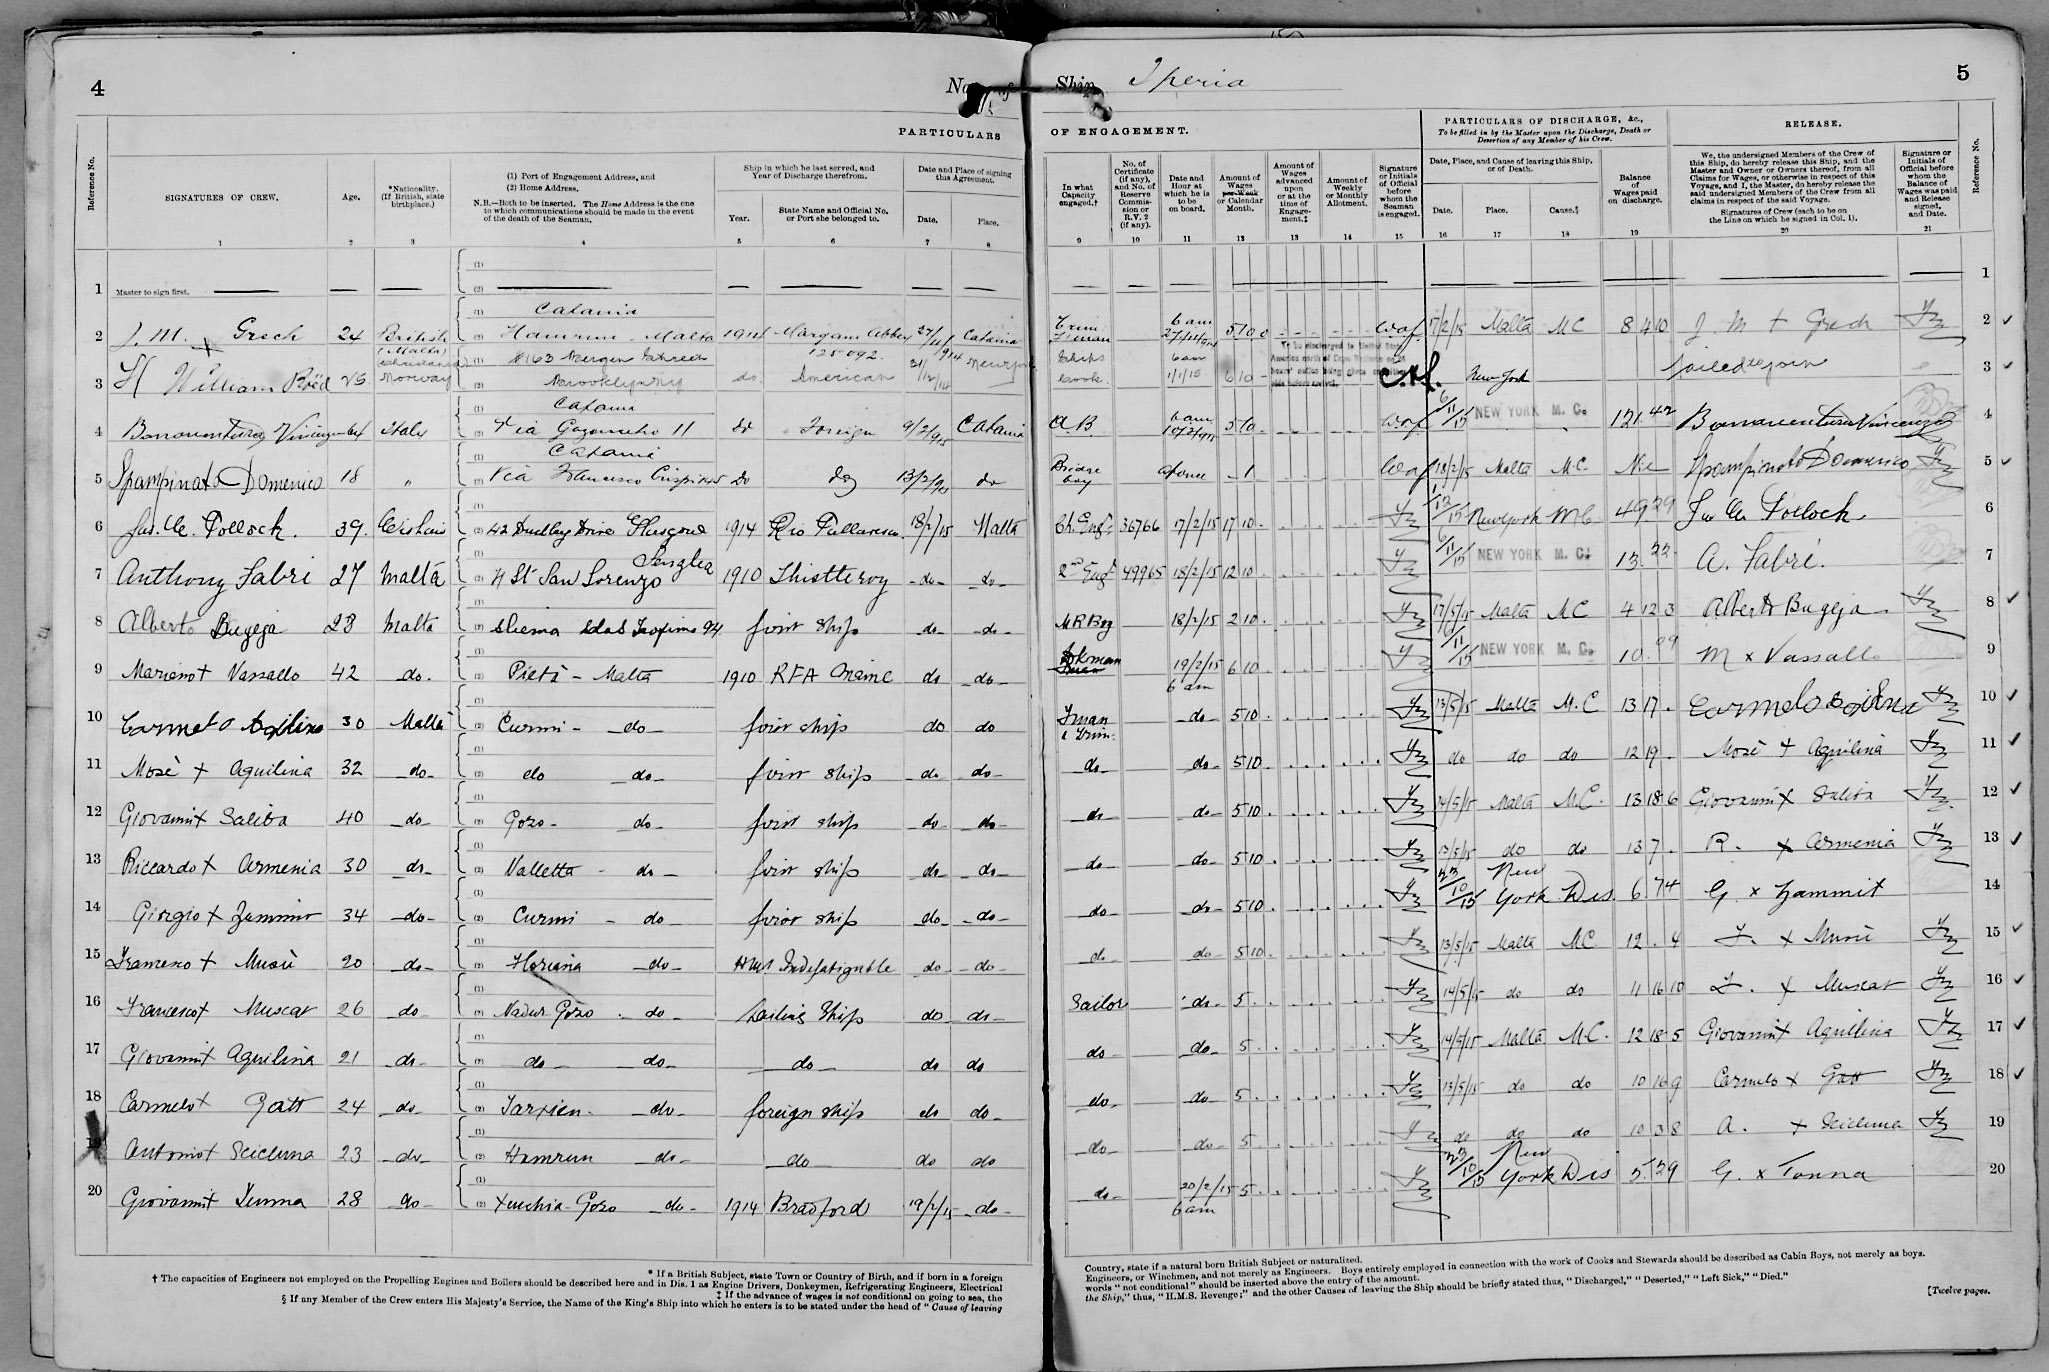 4
No. of
Ship Iperia
5
PARTICULARS
OF ENGAGEMENT.
PARTICULARS OF DISCHARGE, &c.,
To be filled in by the Master upon the Discharge, Death or
Desertion of any Member of his Crew.
RELEASE.
Reference No.
SIGNATURES OF CREW.
Age.
*Nationality.
(If British, state
birthplace.)
(1) Port of Engagement Address, and
(2) Home Address.
N.B.—Both to be inserted. The Home Address is the one
to which communications should be made in the event
of the death of the Seaman.
Ship in which he last served, and
Year of Discharge therefrom.
Year.
State Name and Official No.
or Port she belonged to.
Date and Place of signing
this Agreement.
Date.
Place.
In what
Capacity
engaged.†
No. of
Certificate
(if any),
and No. of
Reserve
Commis-
sion or
R.V. 2
(if any).
Date and
Hour at
which he is
to be
on board.
Amount of
Wages
per Week
or Calendar
Month.
Amount of
Wages
advanced
upon
or at the
time of
Engage-
ment.‡
Amount of
Weekly
or Monthly
Allotment.
Signature
or Initials
of Official
before
whom the
Seaman
is engaged.
Date, Place, and Cause of leaving this Ship,
or of Death.
Date.
Place.
Cause.§
Balance
of
Wages paid
on discharge.
We, the undersigned Members of the Crew of
this Ship, do hereby release this Ship, and the
Master and Owner or Owners thereof, from all
Claims for Wages, or otherwise in respect of this
Voyage, and I, the Master, do hereby release the
said undersigned Members of the Crew from all
claims in respect of the said Voyage.
Signatures of Crew (each to be on
the Line on which he signed in Col. 1).
Signature or
Initials of
Official before
whom the
Balance of
Wages was paid
and Release
signed,
and Date.
Reference No.
1 2 3 4 5 6 7 8 9 10 11 12 13 14 15 16 17 18 19 20 21
1 Master to sign first. 1
Catania
2 J. M. + Grech 24 British (Malta) Hamrun Malta 1914 Margam Abbey 125092 27/11/914 Catania Trim Fiman 6 am 27/11/914 5 10 0 17/2/15 Malta MC 8 4 10 J. M + Grech 2
3 H William Röed 25 Norway #163 Bergen Street Brooklyn NY do American 31/12/14 Ships Cook 6 am 1/1/15 6 10 New York Failed to join 3
Catania
4 Bonaventura Italy Via 11 do Foreign 9/2/915 Catania A.B. 6 am 10/2/915 5 10 6/11/15 NEW YORK M. C. 121.42 Bonaventura Vincenzo 4
Catania
5 Spampinato Domenico 18 " Via Francesco Crispi do do 13/2/915 do Bridge boy at once 1 18/2/15 Malta M.C. Nil Spampinato Domenico 5
6 Jas. Mc Pollock. 39. 42 Dudley Drive Glasgow 1914 Rio 18/2/15 Malta Ch. Engr. 36766 17/2/15 17 10 New York MC 49 29 Jas Mc Pollock 6
7 Anthony Fabri 27 Malta 4 St San Lorenzo Senglea 1910 Thistleroy do do 2nd Engr 49965 18/2/15 12 10 6/11/15 NEW YORK M. C. 13.22 A. Fabri. 7
8 Alberto Bugeja 23 Malta Sliema 94 first ship do do M R Boy 18/2/15 2 10 17/5/15 Malta MC 4 12 3 Alberto Bugeja 8
9 Mariano + Vassallo 42 do Pietà - Malta 1910 RFA Maine do do 19/2/15 6 am 6 10 6/11/15 NEW YORK M. C. 10.99 M x Vassallo 9
10 Carmelo Aquilina 30 Malta Curmi - do first ship do do Fman & Trim: do 5 10 13/5/15 Malta M.C 13 17 Carmelo Aquilina 10
11 Mosè + Aquilina 32 do do do first ship do do do do 5 10 do do do 12 19 Mosè + Aquilina 11
12 Giovanni x Saliba 40 do Gozo - do first ship do do do do 5 10 14/5/15 Malta M.C. 13 18 6 Giovanni x Saliba 12
13 Riccardo x Armenia 30 do Valletta - do first ship do do do do 5 10 13/5/15 do do 13 7 R. x Armenia 13
14 Giorgio x Zammit 34 do Curmi - do first ship do do do do 5 10 23/10/15 New York Dis. 6.74 G. x Zammit 14
15 Francesco + Musù 20 do Floriana do HMS Indefatigable do do do do 5 10 13/5/15 Malta MC 12 . 4 F. x Musù 15
16 Francesco x Muscat 26 do Nadur Gozo do Sailing Ship do do Sailor do 5 14/5/15 do do 11 16 10 F. x Muscat 16
17 Giovanni x Aquilina 21 do do do do do do do do 5 14/5/15 Malta M.C. 12 18 5 Giovanni x Aquilina 17
18 Carmelo x Gatt 24 do Tarxien do foreign ship do do do do 5 13/5/15 do do 10 16 9 Carmelo x Gatt 18
19 Antonio x Scicluna 23 do Hamrun do do do do do do 5 do do do 10 3 8 A. x Scicluna 19
20 Giovanni x Tonna 28 do Xeuchia Gozo do 1914 Bradford 19/2/15 do do 20/2/15 6 am 5 23/10/15 New York Dis 5.29 G. x Tonna 20
* If a British Subject, state Town or Country of Birth, and if born in a foreign
† The capacities of Engineers not employed on the Propelling Engines and Boilers should be described here and in Dis. 1 as Engine Drivers, Donkeymen, Refrigerating Engineers, Electrical
‡ If the advance of wages is not conditional on going to sea, the
§ If any Member of the Crew enters His Majesty's Service, the Name of the King's Ship into which he enters is to be stated under the head of "Cause of leaving
Country, state if a natural born British Subject or naturalized.
Engineers, or Winchmen, and not merely as Engineers. Boys entirely employed in connection with the work of Cooks and Stewards should be described as Cabin Boys, not merely as boys.
words "not conditional" should be inserted above the entry of the amount.
the Ship," thus, "H.M.S. Revenge;" and the other Causes of leaving the Ship should be briefly stated thus, "Discharged," "Deserted," "Left Sick," "Died."
[Twelve pages.